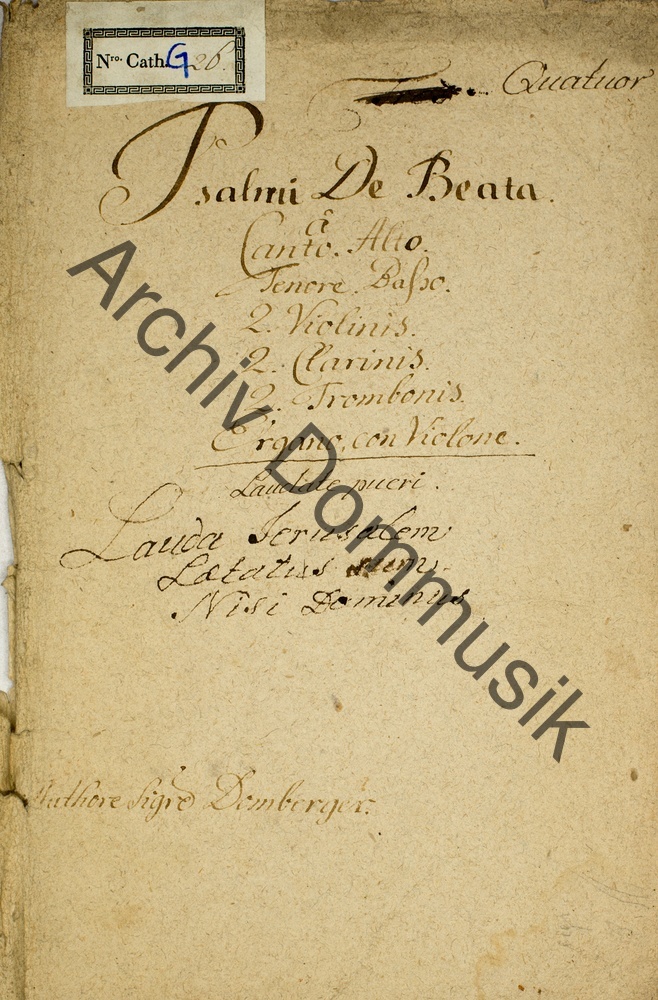 Nro. Cath. G 26.
Quatuor
Psalmi De Beata.
â
Canto. Alto.
Tenore. Baſso.
2. Violinis.
2. Clarinis.
2. Trombonis.
Organo, con Violone.
Laudate pueri.
Lauda Jerusalem
Lætatus sum.
Nisi Dominus
Authore Sigre Domberger.
Archiv Dommusik